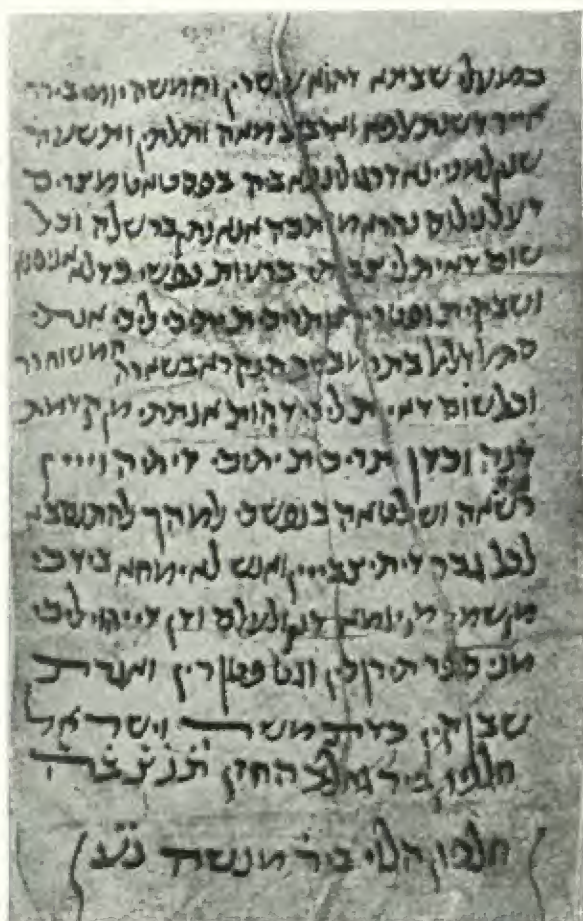 במעלי שבתא דהוא עשרין וחמשה יומי בירח
אייר דשנת אלפא וארבע מאה ותלתין ותשעה
שנין למניינא דרגילנא ביה בפסטאט מצרים
דעל נילוס נהרא מותבה אנא נתן בר וכל
שום דאית לי צביתי ברעות נפשי בדלא אניסנא
ושבקית ופטרית ותריכית יתיכי ליכי אנתי
בת מבשר הנקרא בשארה
וכל שום דאית ליכי דהוית אנתתי מן קדמת
דנה וכדן תריכית יתיכי דיתיהוייין
רשאה ושלטאה בנפשכי למהך להתנסבא
לכל גבר דיתיצבייין ואנש לא ימחא בידכי
מן שמי מן יומא דנן ולעלם ודן דייהוי ליכי
מני ספר תירוכין וגט פטורין ואגרת
שבוקין כדת משה וישראל
חלפון ביר גאלב החזן תנצבה
חלפון הלוי ביר מנשה נע